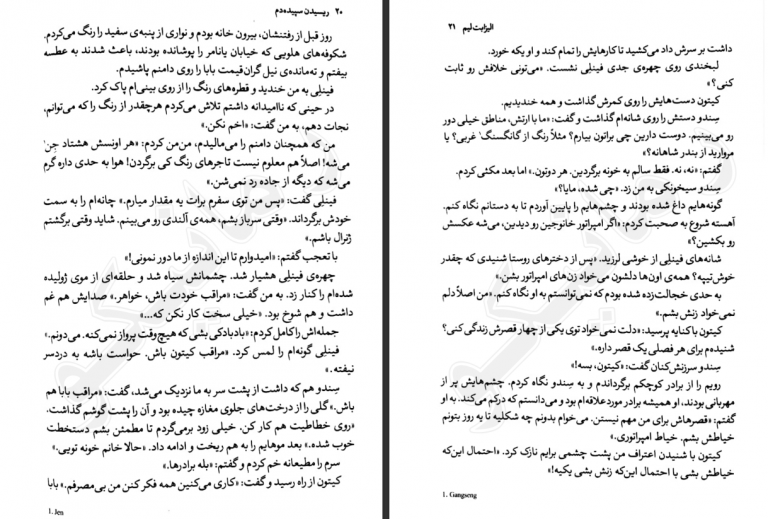 ۲۰ ریسیدن سپیده‌دم
روز قبل از رفتنشان، بیرون خانه بودم و نواری از پنبه‌ی سفید را رنگ می‌کردم.
شکوفه‌های هلویی که خیابان یانامر را پوشانده بودند، باعث شدند به عطسه
بیفتم و ته‌مانده‌ی نیل گران‌قیمت بابا را روی دامنم پاشیدم.
فینلِی به من خندید و قطره‌های رنگ را از روی بینی‌ام پاک کرد.
در حینی که ناامیدانه داشتم تلاش می‌کردم هرچقدر از رنگ را که می‌توانم،
نجات دهم، به من گفت: «اخم نکن.»
من که همچنان دامنم را می‌مالیدم، من‌من کردم: «هر اونسش هشتاد جِن¹
می‌شه! اصلاً هم معلوم نیست تاجرهای رنگ کی برگردن! هوا به حدی داره گرم
می‌شه که دیگه از جاده رد نمی‌شن.»
فینلِی گفت: «پس من توی سفرم برات یه مقدار میارم.» چانه‌ام را به سمت
خودش برگرداند. «وقتی سرباز بشم، همه‌ی آلندی رو می‌بینم. شاید وقتی برگشتم
ژنرال باشم.»
با تعجب گفتم: «امیدوارم تا این اندازه از ما دور نمونی!»
چهره‌ی فینلِی هشیار شد. چشمانش سیاه شد و حلقه‌ای از موی ژولیده
شده‌ام را کنار زد. به من گفت: «مراقب خودت باش، خواهر.» صدایش هم غم
داشت و هم شوخ بود. «خیلی سخت کار نکن که...»
جمله‌اش را کامل کردم: «بادبادکی بشی که هیچ‌وقت پرواز نمی‌کنه. می‌دونم.»
فینلِی گونه‌ام را لمس کرد. «مراقب کیتون باش. حواست باشه به دردسر
نیفته.»
سِندو هم که داشت از پشت سر به ما نزدیک می‌شد، گفت: «مراقب بابا هم
باش.» گلی را از درخت‌های جلوی مغازه چیده بود و آن را پشت گوشم گذاشت.
«روی خطاطیت هم کار کن. خیلی زود برمی‌گردم تا مطمئن بشم دستخطت
خوب شده.» بعد موهایم را به هم ریخت و ادامه داد. «حالا خانم خونه تویی.»
سرم را مطیعانه خم کردم و گفتم: «بله برادرها.»
کیتون از راه رسید و گفت: «کاری می‌کنین همه فکر کنن من بی‌مصرفم.» بابا
1. Jen
الیزابت لیم ۲۱
داشت بر سرش داد می‌کشید تا کارهایش را تمام کند و او یکه خورد.
لبخندی روی چهره‌ی جدی فینلِی نشست. «می‌تونی خلافش رو ثابت
کنی؟»
کیتون دست‌هایش را روی کمرش گذاشت و همه خندیدیم.
سِندو دستش را روی شانه‌ام گذاشت و گفت: «ما با ارتش، مناطق خیلی دور
رو می‌بینیم. دوست دارین چی براتون بیارم؟ مثلاً رنگ از گانگسنگ¹ غربی؟ یا
مروارید از بندر شاهانه؟»
گفتم: «نه، نه. فقط سالم به خونه برگردین. هر دوتون.» اما بعد مکثی کردم.
سِندو سیخونکی به من زد. «چی شده، مایا؟»
گونه‌هایم داغ شده بودند و چشم‌هایم را پایین آوردم تا به دستانم نگاه کنم.
آهسته شروع به صحبت کردم: «اگر امپراتور خانوجین رو دیدین، می‌شه عکسش
رو بکشین؟»
شانه‌های فینلِی از خوشی لرزید. «پس از دخترهای روستا شنیدی که چقدر
خوش‌تیپه؟ همه‌ی اون‌ها دلشون می‌خواد زن‌های امپراتور بشن.»
به حدی خجالت‌زده شده بودم که نمی‌توانستم به او نگاه کنم. «من اصلاً دلم
نمی‌خواد زنش بشم.»
کیتون با کنایه پرسید: «دلت نمی‌خواد توی یکی از چهار قصرش زندگی کنی؟
شنیده‌م برای هر فصلی یک قصر داره.»
سِندو سرزنش‌کنان گفت: «کیتون، بسه!»
رویم را از برادر کوچکم برگرداندم و به سِندو نگاه کردم. چشم‌هایش پر از
مهربانی بودند، او همیشه برادر موردعلاقه‌ام بود و می‌دانستم که درکم می‌کند. به او
گفتم: «قصرهاش برای من مهم نیستن. می‌خوام بدونم چه شکلیه تا یه روز بتونم
خیاطش بشم. خیاط امپراتوری.»
کیتون با شنیدن اعتراف من پشت چشمی برایم نازک کرد. «احتمال این‌که
خیاطش بشی با احتمال این‌که زنش بشی یکیه!»
1. Gangseng